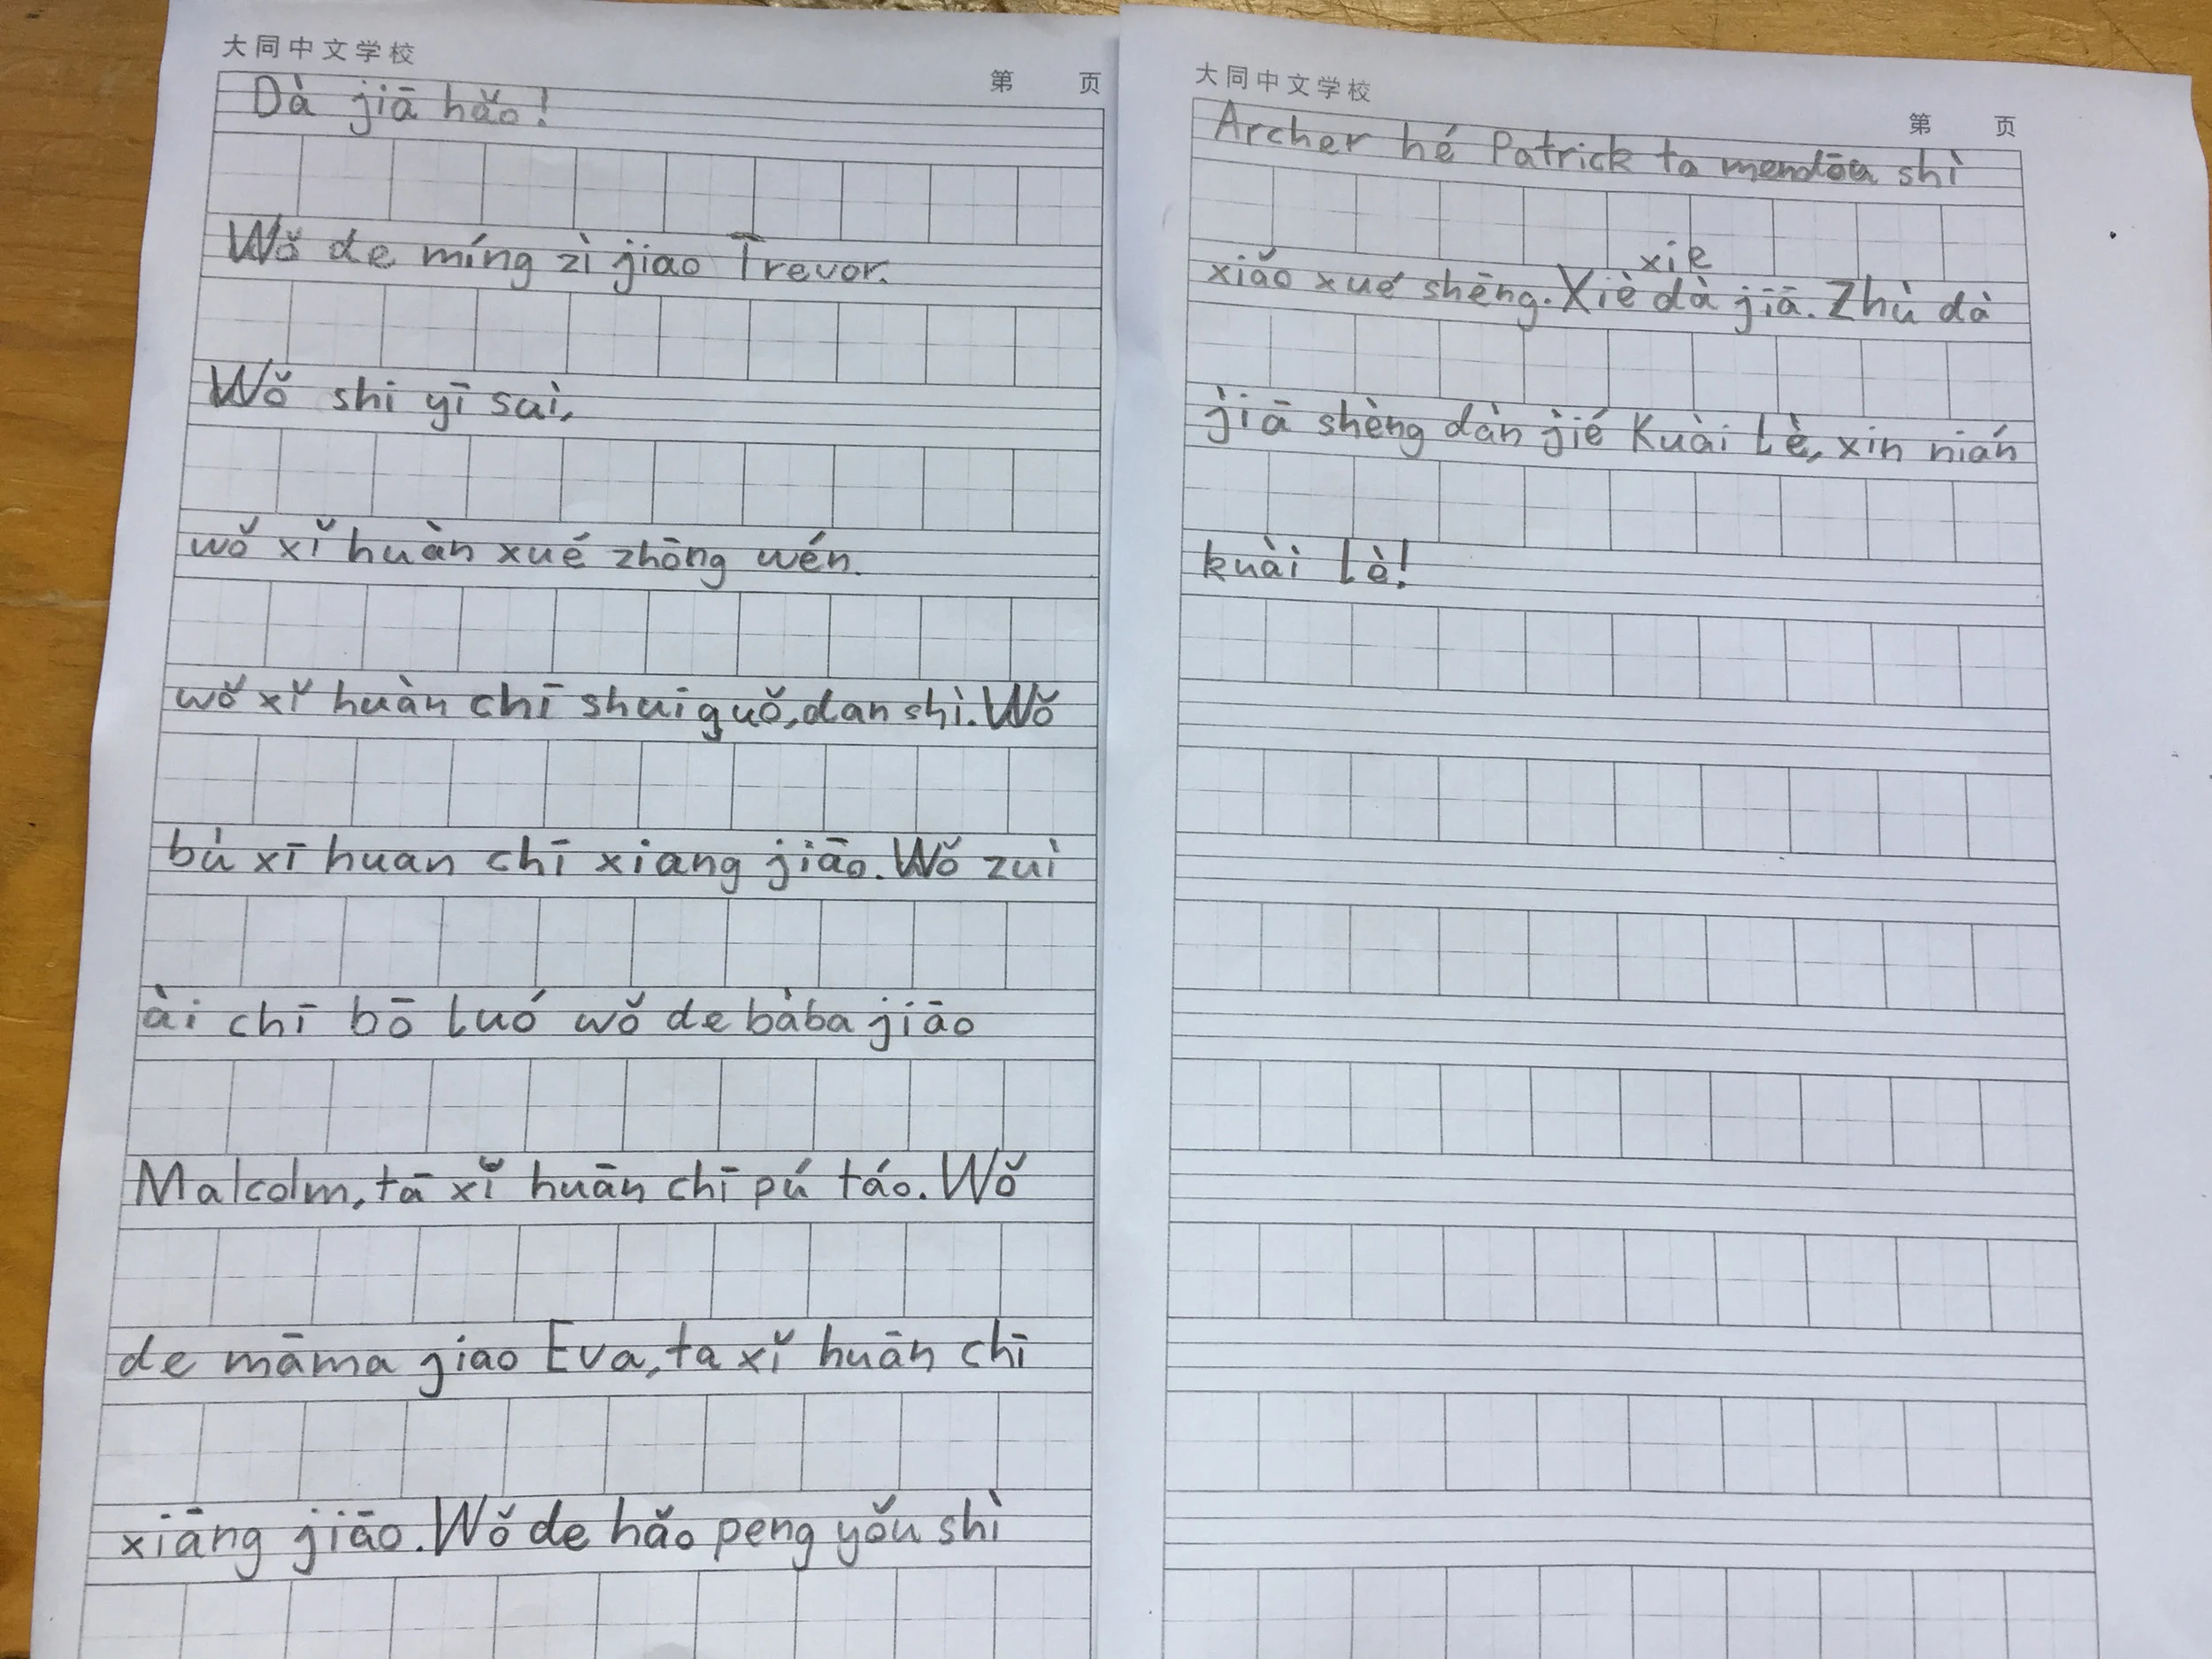 大同中文学校
第 页
Dà jiā hǎo!
Wǒ de míng zì jiao Trevor.
Wǒ shi yī sai,
wǒ xǐ huàn xué zhōng wén.
wǒ xǐ huàn chī shui guǒ, dan shì. Wǒ
bù xī huan chī xiang jiāo. Wǒ zuì
ài chī bō luó wǒ de bàba jiāo
Malcolm, tā xǐ huān chī pú táo. Wǒ
de māma giao Eva, ta xǐ huān chī
xiāng jiāo. Wǒ de hǎo peng yǒu shì
大同中文学校
第 页
Archer hé Patrick ta men dōu shì
xie
xiǎo xué shēng. Xiè dà jiā. Zhù dà
jiā shèng dàn jié Kuài Lè, xin nián
kuài Lè!